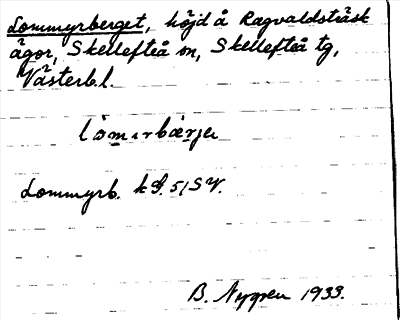 Lommyrberget, höjd å Ragvaldsträsk
ägor, Skellefteå sn, Skellefteå tg,
Västerb.l.
Lommyrb. k S. 51 SV.
B. Nygren 1933.